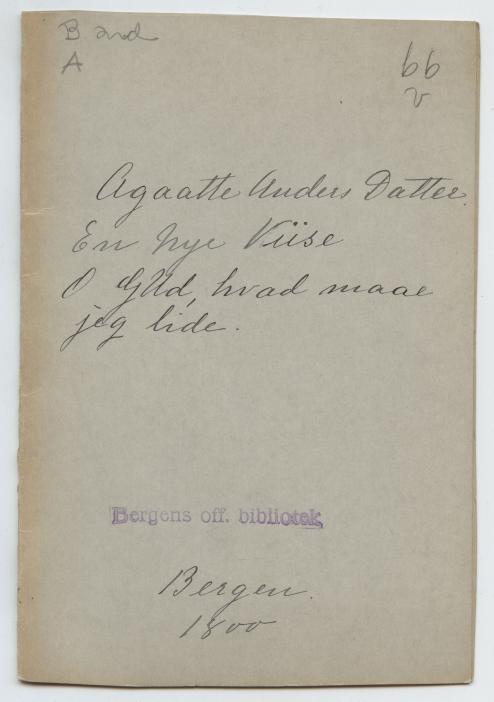 B and
A
66
v
Agaatte Anders Datter.
En nye Viise
O Gud, hvad maae
jeg lide.
Bergens off. bibliotek
Bergen.
1800